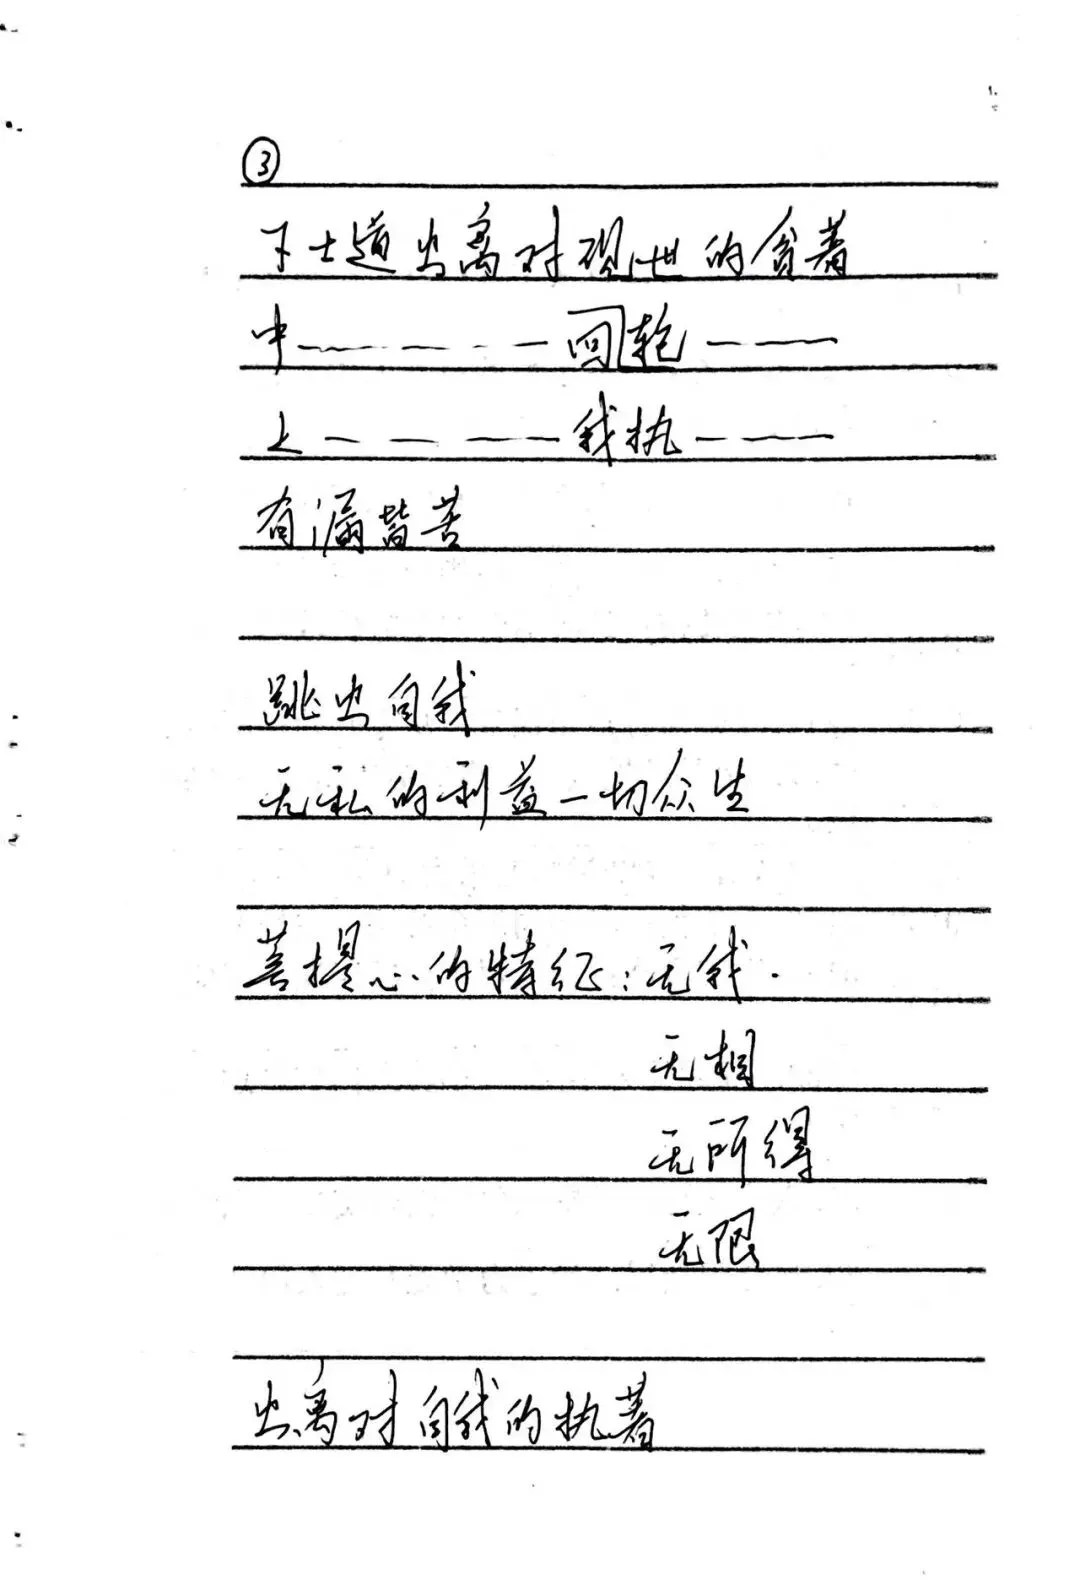 ③
下士道出离对现世的贪著
中————轮回———
上————我执———
有漏皆苦
跳出自我
无私的利益一切众生
菩提心的特征：无我.
无相
无所得
无限
出离对自我的执著